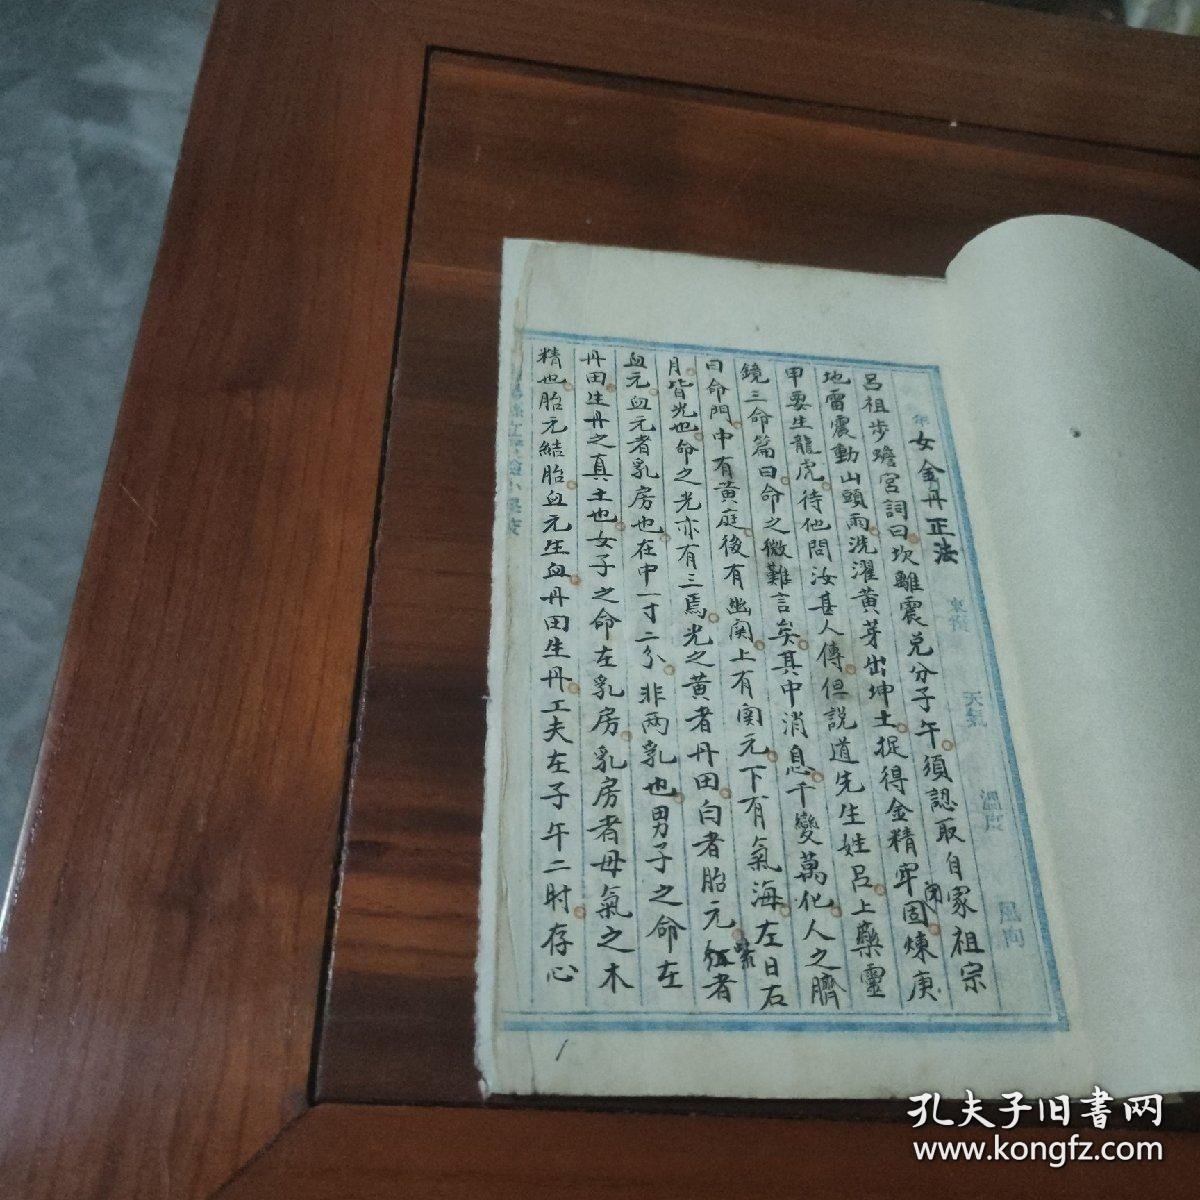 女金丹正法
呂祖步蟾宮詞曰坎離震兌分子午須認取自家祖宗
地雷震動山頭雨洗濯黃芽出坤土捉得金精牢固閉煉庚
甲要生龍虎待他問汝甚人傳但說道先生姓呂上藥靈
鏡三命篇曰命之微難言矣其中消息千變萬化人之臍
曰命門中有黃庭後有幽関上有関元下有氣海左日右
月皆光也命之光亦有三焉光之黃者丹田白者胎元紫者
血元血元者乳房也在中一寸二分非兩乳也男子之命左
丹田生丹之真土也女子之命左乳房乳房者母氣之木
精也胎元結胎血元生血丹田生丹工夫左子午二时存心
年
天氣
溫度
風向
1
孔夫子旧書网
www.kongfz.com